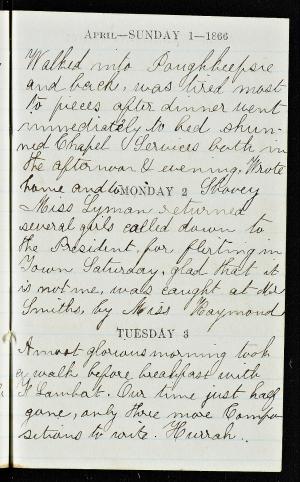 APRIL—SUNDAY 1—1866
Walked into Poughkeepsie
and back, was tired most
to pieces after dinner went
immediately to bed shun-
ned Chapel Services both in
the afternoon & evening. Wrote
home and to
MONDAY 2
Miss Lyman returned
several girls called down to
the President for flirting in
Town Saturday, glad that it
is not me, was caught at Mr
Smiths, by Miss Raymond
TUESDAY 3
A most glorious morning took
a walk before breakfast with
Lambert. Our time just half
gone, only three more Compo
sitions to write. Hurrah..